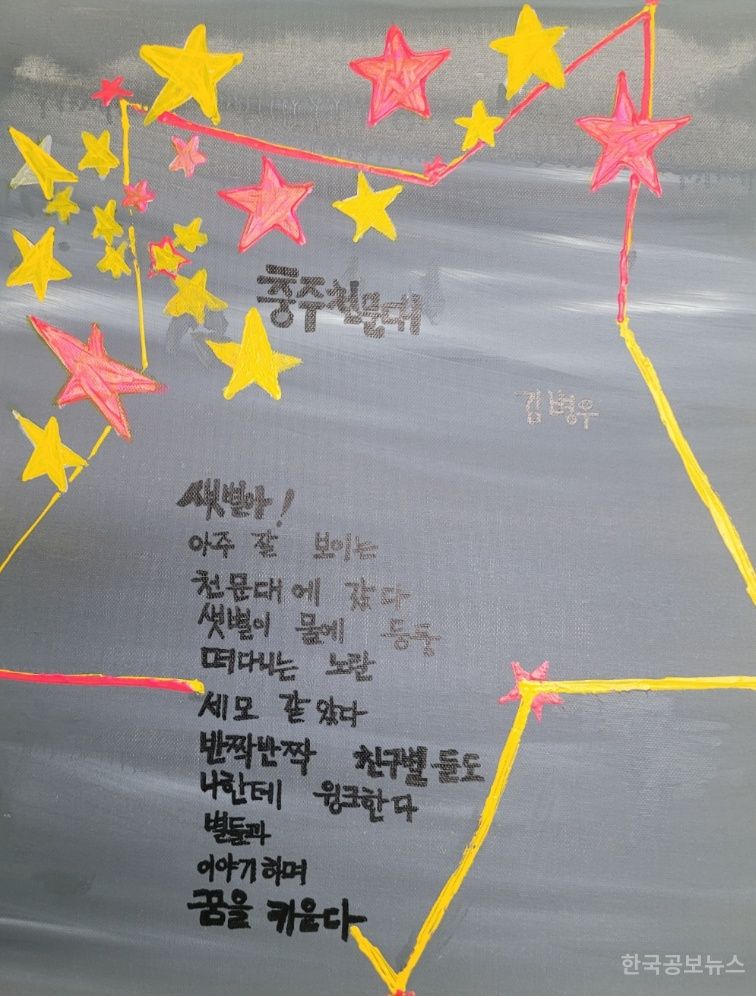 충주천문대
김병우
샛별아!
아주 잘 보이는
천문대에 갔다
샛별이 물에 둥둥
떠다니는 노란
세모 같았다
반짝반짝 친구별들도
나한테 윙크한다
별들과
이야기하며
꿈을 키운다
한국공보뉴스